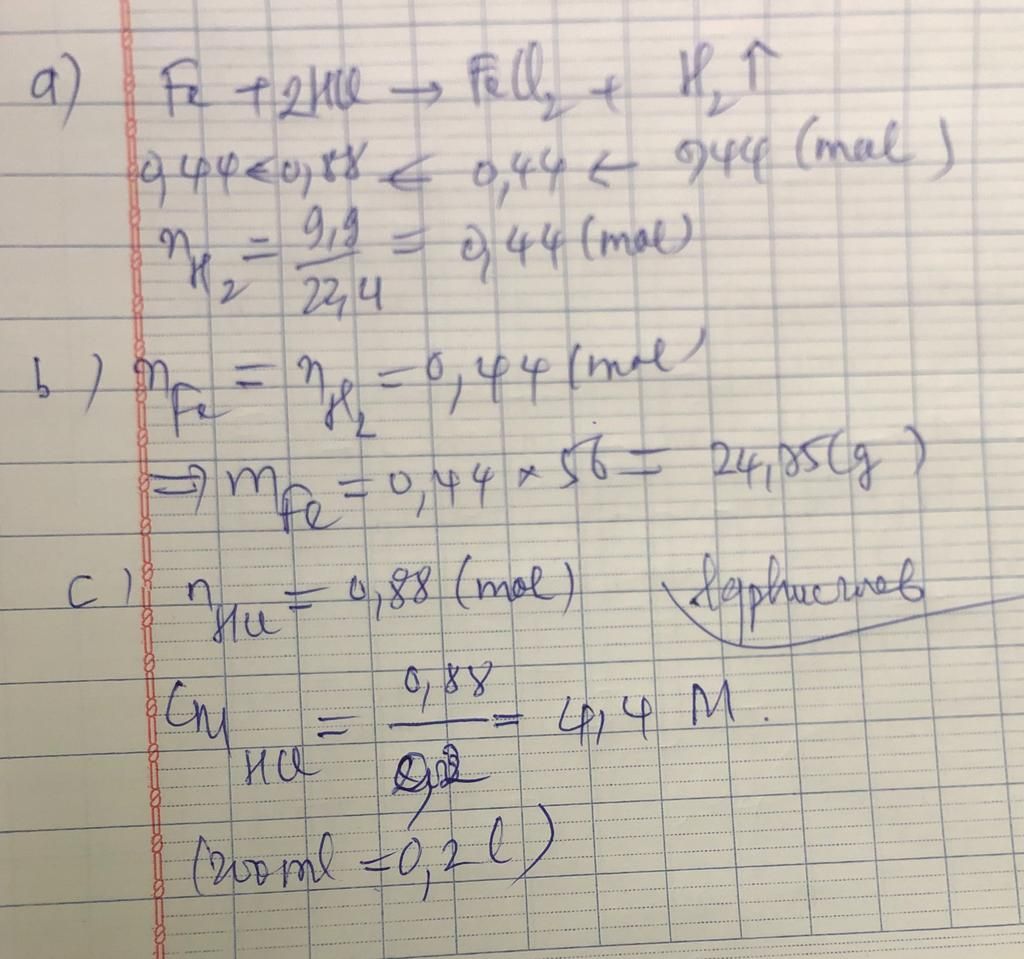 a) Fe + 2HCl → FeCl₂ + H₂↑
0,44 < 0,88 ← 0,44 ← 0,44 (mol)
n_H₂ = 9,9/22,4 = 0,44 (mol)
b) n_Fe = n_H₂ = 0,44 (mol
⇒ m_Fe = 0,44 × 56 = (g)
c) n_HCl = 0,88 (mol)
C_M HCl = 0,88/0,2 = 4,4 M.
(200ml = 0,2 l)